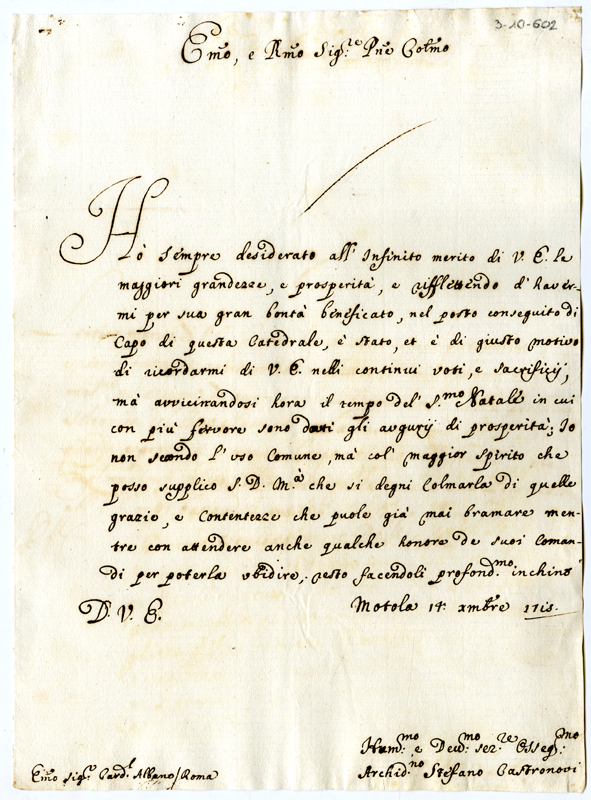 3-10-602
Emo, e Rmo Sig.re Pne Colmo
Hò sempre desiderato all' Infinito merito di V. E. le
maggiori grandezze, e prosperità, e riflettendo d' haver-
mi per sua gran bontà beneficato, nel posto conseguito di
Capo di questa Catedrale, è stato, et è di giusto motivo
di ricordarmi di V. E. nelli continui voti, e sacrificij,
mà avvicinandosi hora il tempo del' S.mo Natale in cui
con più fervore sono dati gli augurij di prosperità; Io
non secondo l' uso Comune, mà col' maggior spirito che
posso supplico S. D. M.à che si degni Colmarla di quelle
grazie, e Contentezze che puole già mai bramare men-
tre con attendere anche qualche honore de suoi Coman-
di per poterla ubidire, resto facendoli profond.mo inchino
D. V. E. Motola 14. xmbre
Hum.mo e Dev.mo ser.re Osseq.mo
Emo Sig.r Card.l Albano / Roma Archid.no Stefano Castronovi